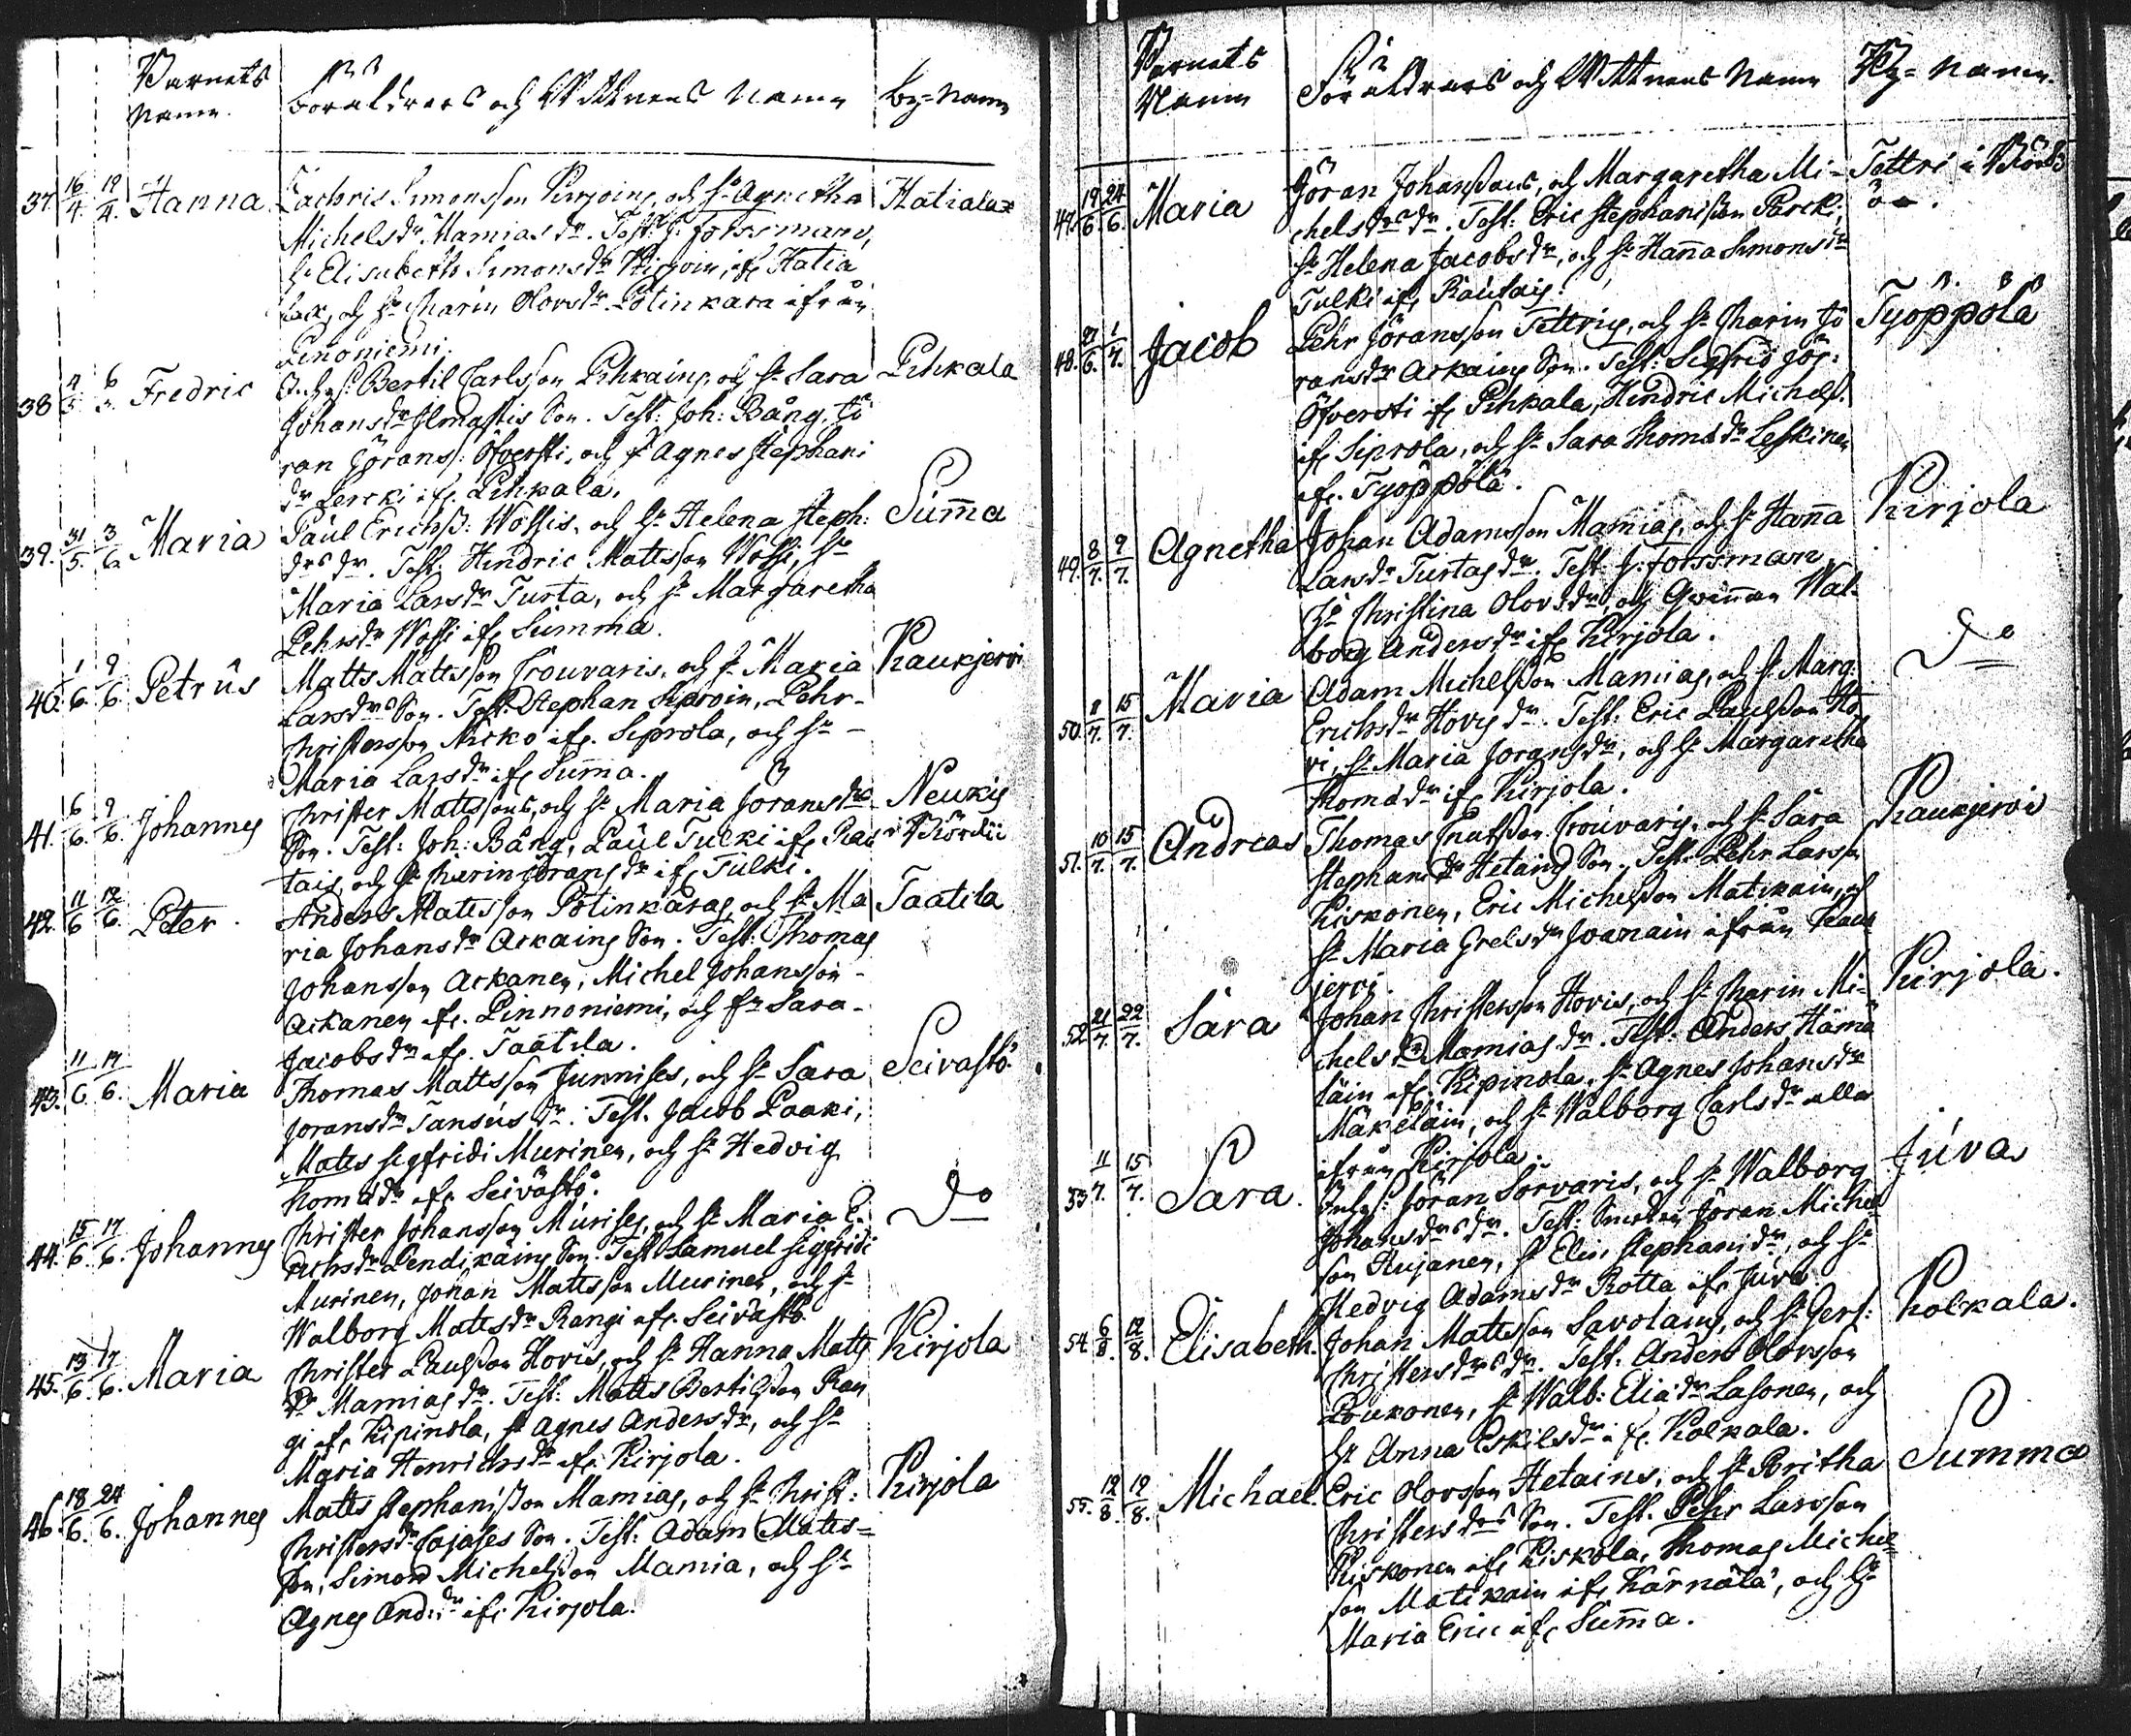 Barnets
Namn.
Föräldrars och Wittnens Namn
By=Namn
37. 16/4. 19/4. Hanna. Zachris Simonsson Kirjoins, och h: Agnetha Hatiala=
Michelsdr Mamias dr. Test: J: Forssman,
h: Elisabeth Simonsdr Kirjoin, ifr Hatia
lax, och h: Charin Olovsdr Pötinkara ifrån
Penoniemi.
38 4/5 6/5. Fredric Bertil Carlsson Pihkains, och h: Sara Pihkala
Johansdr Ilmastis Son. Test: Joh: Bång, Jö
ran Jörans: Öfversti, och h: Agnes Stephani
dr Lercki ifr. Pihkala.
39. 31/5. 3/6. Maria Paul Erichss: Wossis, och h: Helena Steph: Sum̄a
drs dr. Test: Hindric Mattsson Wossi, h:
Maria Larsdr Turta, och h: Margaretha
Pehrsdr Wossi ifr Summa.
40. 1/6. 9/6. Petrus Matts Mattsson Crouvaris, och h: Maria Kaukjervi
Larsdrs Son. Test: Stephan Siproin, Pehr
Christersson Nicko ifr. Siprola, och h:
Maria Larsdr ifr Sum̄a.
41. 6/6. 9/6. Johannes Christer Mattssons, och h: Maria Joransdrs Neukis
Son. Test: Joh: Bång, Paul Tulki ifr Rau i Björkö
tais, och h: Charin Joransdr ifr Tulki.
42. 11/6 12/6. Peter. Anders Mattsson Pötinkaras, och h: Ma Taatila
ria Johansdr Ackains Son. Test: Thomas
Johansson Ackanen, Michel Johansson
Ackanen ifr. Pinnoniemi, och h: Sara
Jacobsdr ifr. Taatila.
43. 11/6 14/6. Maria Thomas Mattsson Junnises, och h: Sara Seivastö.
Joransdr Tansus dr. Test. Jacob Paaki,
Matts Sigfridi Murinen, och h: Hedvig
Thomædr ifr Seivästö.
44. 15/6. 17/6. Johannes Christer Johansson Murises, och h: Maria E. Do
richsdr Pendikäins Son. Test Samuel Sigfridi
Murinen, Johan Mattsson Murinen, och h:
Walborg Mattsdr Rangi ifr. Seivästö
45. 13/6. 17/6. Maria Christer Paulsson Hovis, och h: Hanna Matts Kirjola
dr Mamias dr. Test: Matts Bertilsson Ran
gi ifr. Kipinola, h: Agnes Andersdr, och h:
Maria Henrichsdr ifr. Kirjola.
46. 18/6. 24/6. Johannes Matts Stephanisson Mamias, och h: Christ: Kirjola
Christersdr Cajases Son. Test: Adam Matts=
son, Simon Michelsson Mamia, och h:
Agnes And:dr ifr Kirjola.
Barnets
Namn
Föräldrars och Wittnens Namn
By=Namn.
47. 19/6. 24/6. Maria Göran Johanssons, och Margaretha Mi= Tettri i Björk
chelsdrs dr. Test: Eric Stephanisson Parcki, ö.
h: Helena Jacobsdr, och h: Han̄a Simonsdr
Tulki ifr Rautais.
48. 27/6. 1/7. Jacob Pehr Göransson Tettris, och h: Charin Jö Työppölä
ransdr Ackains Son. Test: Sigfrid Jör:
Öfversti ifr Pihkala, Hindric Michelss.
ifr Siprola, och h: Sara Thomædr Leskinen
ifr. Työppölä.
49. 8/7. 9/7. Agnetha Johan Adamsson Mamias, och h: Han̄a Kirjola
Larsdr Turtas dr. Test. J: Forssman,
h: Christina Olovsdr, och Qwinnan Wal=
borg Andersdr ifr Kirjola.
50. 8/7. 15/7. Maria Adam Michelsson Mamias, och h: Marg. Do
Erichsdr Hovis dr. Test: Eric Paulsson Ho
vi, h: Maria Joransdr, och h: Margaretha
Thomædr ifr Kirjola.
51. 10/7. 15/7. Andreas Thomas Cnutsson Crouvaris, och h: Sara Kaukjervi
Stephanidr Hetains Son. Test: Pehr Larsson
Kiskonen, Eric Michelsson Matikain, och
h: Maria Grelsdr Joanain ifrån Kauk
jervi.
52 21/7. 22/7. Sara Johan Christersson Hovis, och h: Charin Mi= Kirjola.
chelsdr Mamias dr. Test: Anders Hämä
läin ifr. Kipinola, h: Agnes Johansdr
Mäkeläin, och h: Walborg Carlsdr alla
ifrån Kirjola.
53 11/7. 15/7. Sara. Inhys: Jöran Sorvaris, och h: Walborg Juva
Johansdrs dr. Test: Smeden Jöran Michel
son Kujanen, h: Elis: Stephanidr, och h:
Hedvig Adamsdr Rotta ifr Juva
54. 6/8. 12/8. Elisabeth. Johan Mattsson Savolains, och h: Gert: Kolkala.
Christersdrs dr. Test. Anders Olovsson
Loukonen, h: Walb: Eliædr Lasonen, och
h: Anna Eskilsdr ifr. Kolkala.
55. 12/8. 19/8. Michael. Eric Olovsson Hetains, och h: Britha Summa
Christersdrs Son. Test. Pehr Larsson
Kiskonen ifr Kiskola, Thomas Michel=
son Matikain ifr Kärnälä, och h:
Maria Eric ifr Sum̄a.